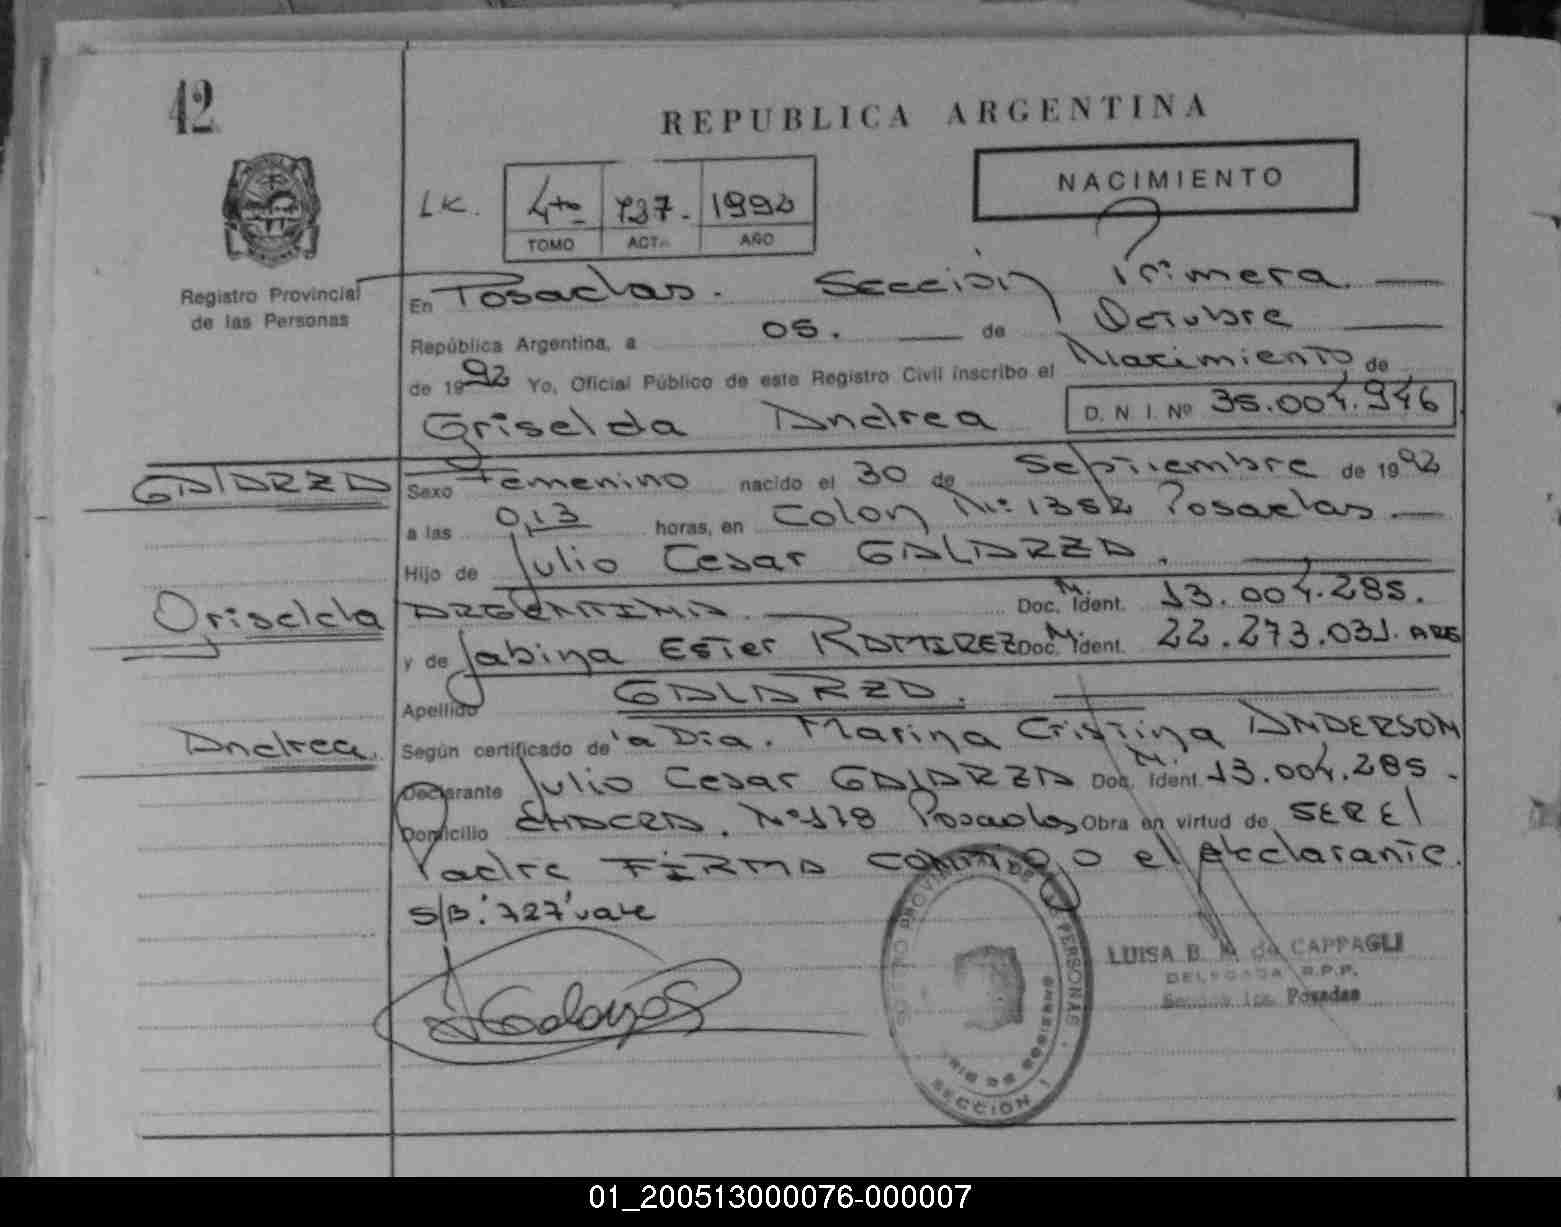 42
REPUBLICA ARGENTINA
NACIMIENTO
LK. 4to 737. 1992
TOMO ACTA AÑO
Registro Provincial
de las Personas
En Posadas. Sección Primera.
República Argentina, a 05. de Octubre
de 1992 Yo, Oficial Público de este Registro Civil inscribo el Nacimiento de
Griselda Andrea D. N. I. Nº 35.004.946
GALARZA
Sexo Femenino nacido el 30 de Septiembre de 1992
a las 0,13 horas, en Colon Nº: 1352 Posadas.
Hijo de Julio Cesar GALARZA.
Griselda
ARGENTINA. Doc. M. Ident. 13.004.285.
y de Sabina Ester RAMIREZ Doc. M. Ident. 22.273.031. ARG
Apellido GALARZA.
Andrea.
Según certificado de 'a Dra. Marina Cristina ANDERSON
Declarante Julio Cesar GALARZA Doc. M. Ident. 13.004.285.
Domicilio Nº 178 Posadas Obra en virtud de SER El
Padre FIRMA conmigo el declarante.
S/B: '727' vale
REGISTRO PROVINCIAL DE LAS PERSONAS
SECCION 1
LUISA B. M. de CAPPAGLI
DELEGADA R.P.P.
Sección 1ra. Posadas
01_200513000076-000007